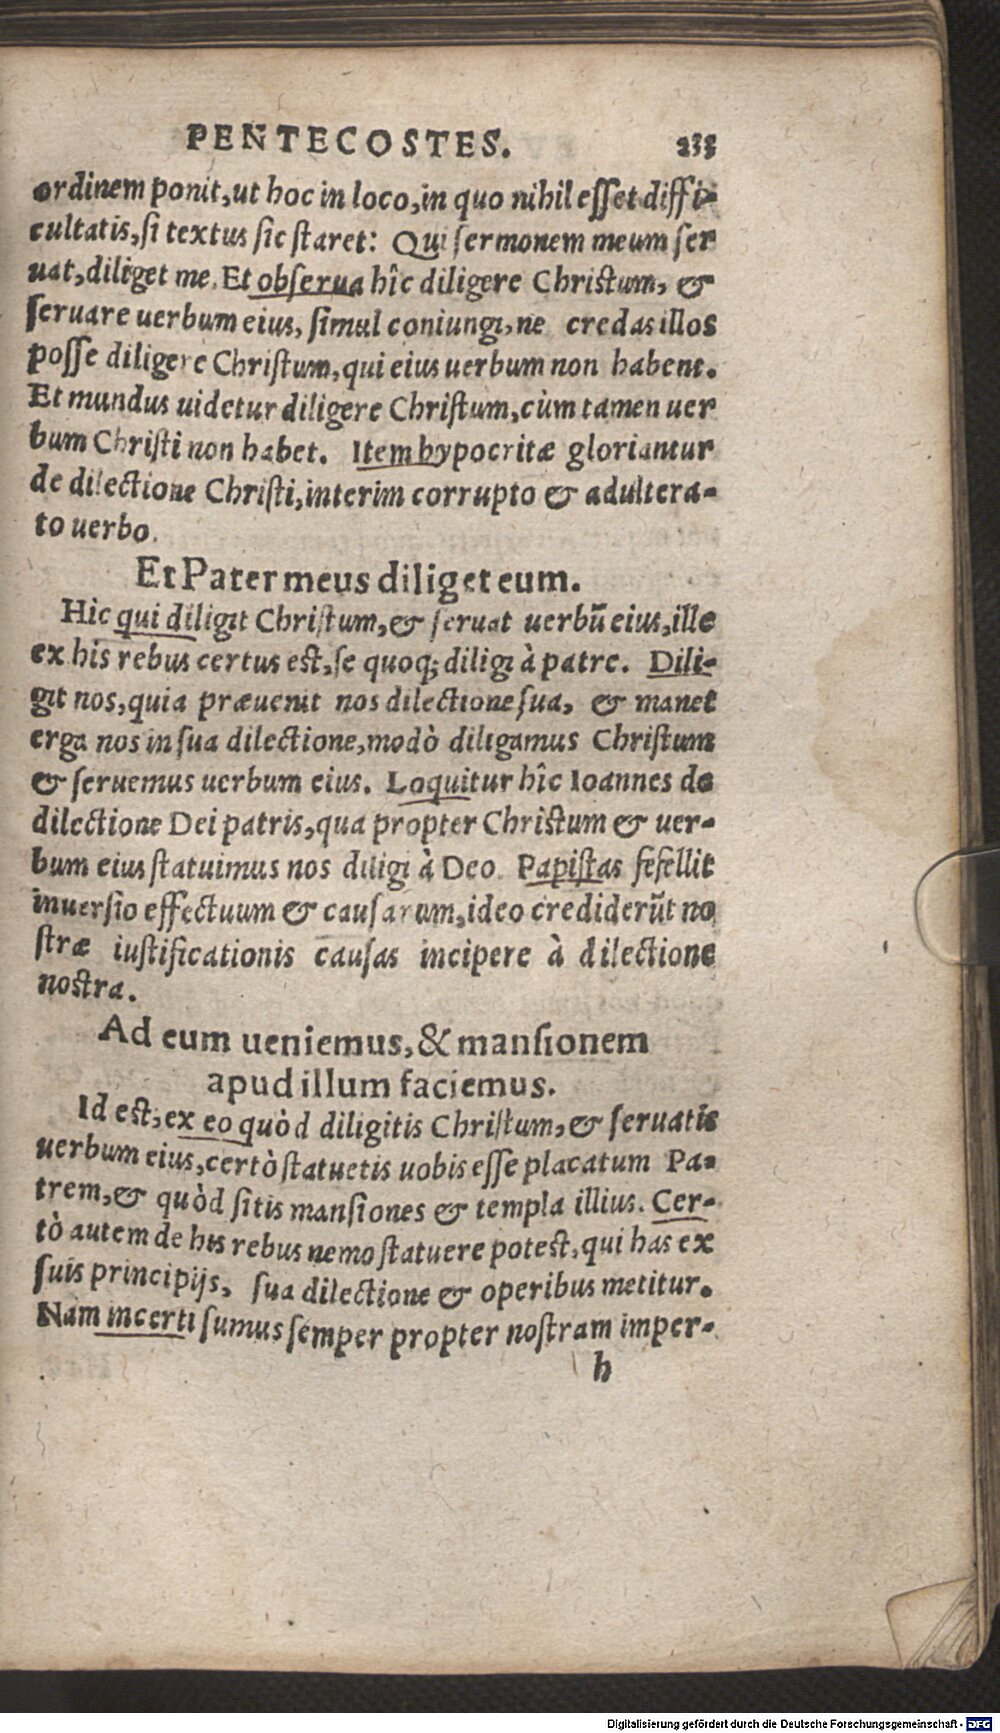 PENTECOSTES. 233
ordinem ponit, ut hoc in loco, in quo nihil esset diffi-
cultatis, si textus sic staret: Qui sermonem meum ser
uat, diliget me. Et obserua hîc diligere Christum, &
seruare uerbum eius, simul coniungi, ne credas illos
posse diligere Christum, qui eius uerbum non habent.
Et mundus uidetur diligere Christum, cùm tamen uer
bum Christi non habet. Item hypocritæ gloriantur
de dilectione Christi, interim corrupto & adultera-
to uerbo.
Et Pater meus diliget eum.
Hic qui diligit Christum, & seruat uerbũ eius, ille
ex his rebus certus est, se quoq; diligi à patre. Dili-
git nos, quia præuenit nos dilectione sua, & manet
erga nos in sua dilectione, modò diligamus Christum
& seruemus uerbum eius. Loquitur hîc Ioannes de
dilectione Dei patris, qua propter Christum & uer-
bum eius statuimus nos diligi à Deo. Papistas fefellit
inuersio effectuum & causarum, ideo crediderũt no
stræ iustificationis causas incipere à dilectione
nostra.
Ad eum ueniemus, & mansionem
apud illum faciemus.
Id est, ex eo quòd diligitis Christum, & seruatis
uerbum eius, certò statuetis uobis esse placatum Pa-
trem, & quòd sitis mansiones & templa illius. Cer-
tò autem de his rebus nemo statuere potest, qui has ex
suis principijs, sua dilectione & operibus metitur.
Nam incerti sumus semper propter nostram imper-
h
Digitalisierung gefördert durch die Deutsche Forschungsgemeinschaft - DFG